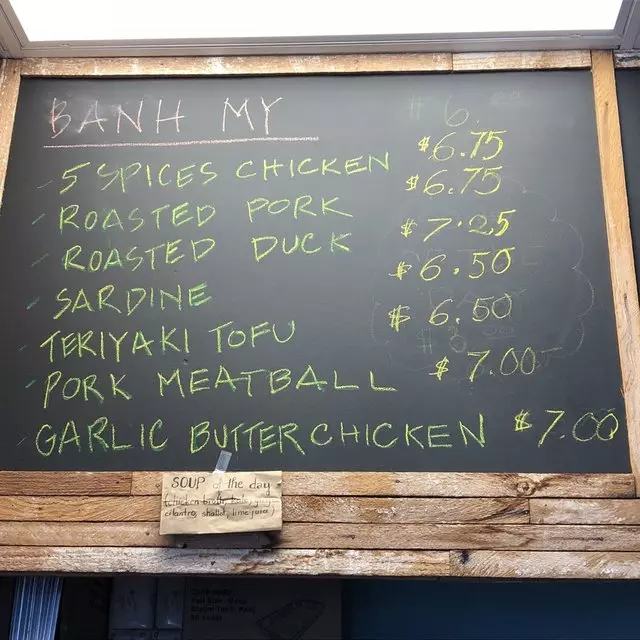 BANH MY
5 SPICES CHICKEN $6.75
ROASTED PORK $6.75
ROASTED DUCK $7.25
SARDINE $6.50
TERIYAKI TOFU $6.50
PORK MEATBALL $7.00
GARLIC BUTTER CHICKEN $7.00
SOUP of the day
(chicken broth,
cilantro, shallot, lime juice)